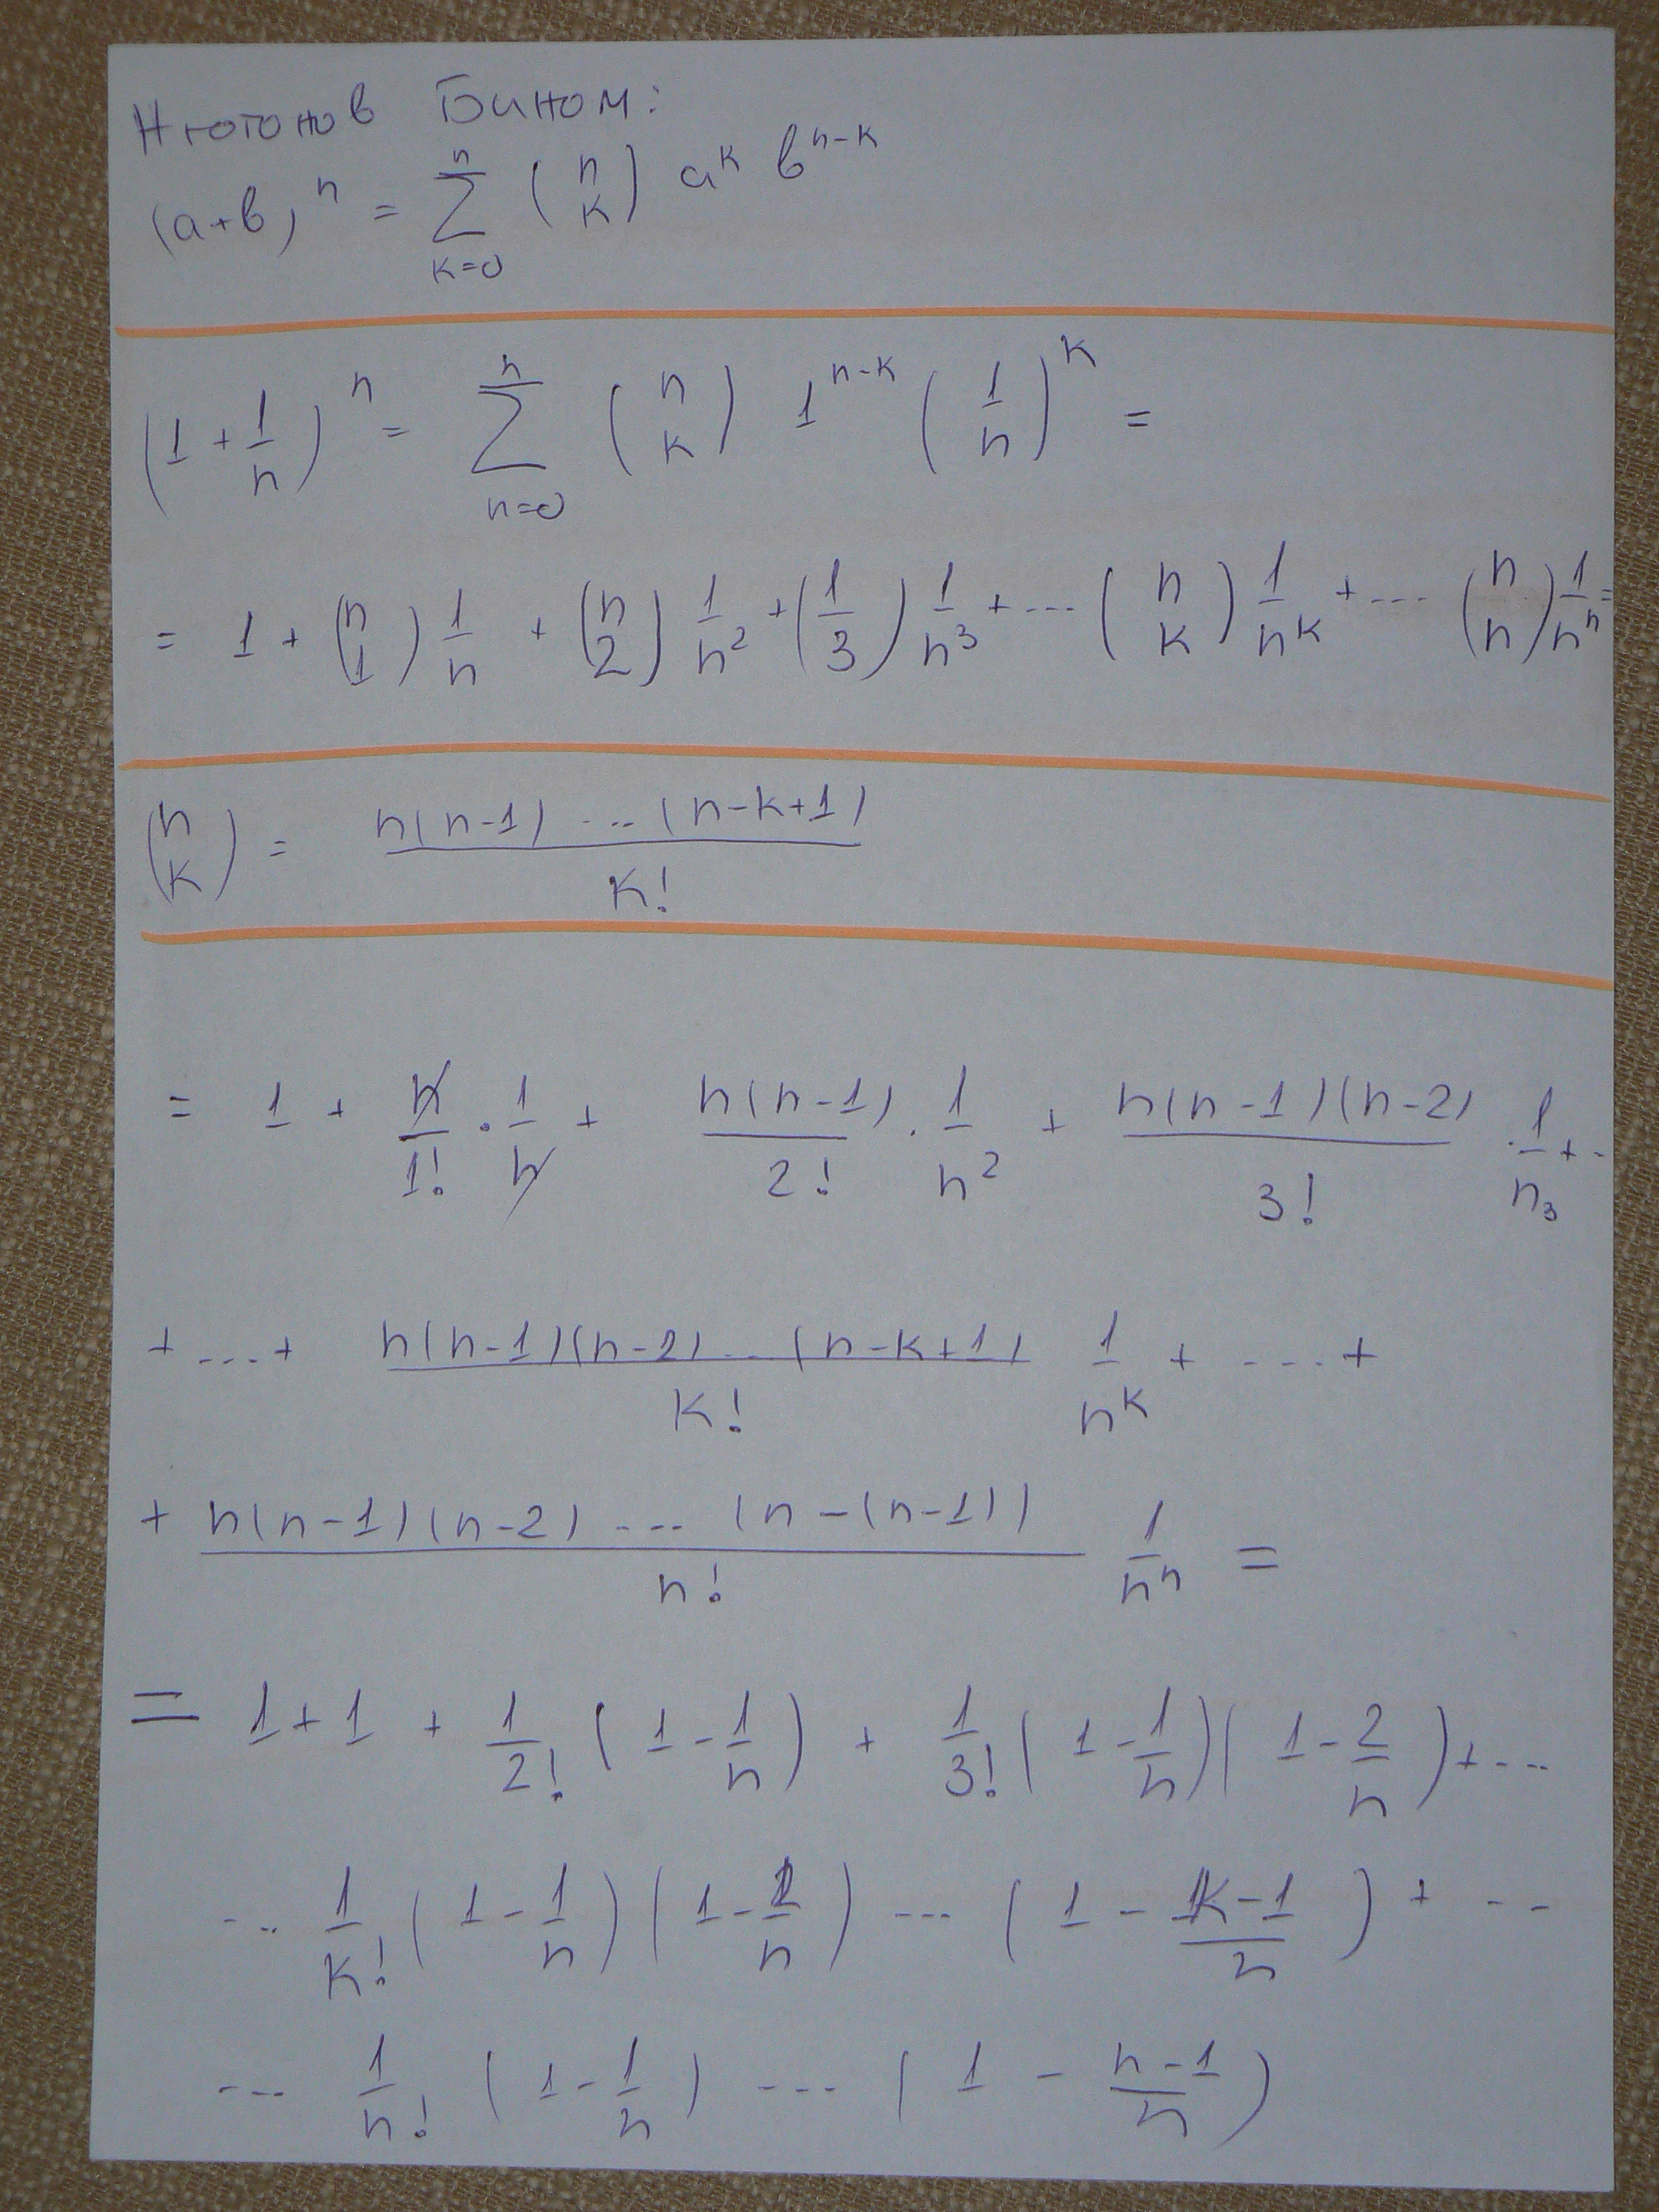 Нютонов Бином:
(a+b)^n = \sum_{k=0}^{n} \binom{n}{k} a^k b^{n-k}
(1 + \frac{1}{n})^n = \sum_{n=0}^{n} \binom{n}{k} 1^{n-k} (\frac{1}{n})^k =
= 1 + \binom{n}{1} \frac{1}{n} + \binom{n}{2} \frac{1}{n^2} + (\frac{1}{3}) \frac{1}{n^3} + ... \binom{n}{k} \frac{1}{n^k} + ... \binom{n}{n} \frac{1}{n^n} =
\binom{n}{k} = \frac{n(n-1) ... (n-k+1)}{k!}
= 1 + \frac{n}{1!} · \frac{1}{n} + \frac{n(n-1)}{2!} · \frac{1}{n^2} + \frac{n(n-1)(n-2)}{3!} · \frac{1}{n_3} + ..
+ ... + \frac{n(n-1)(n-2) .. (n-k+1)}{k!} \frac{1}{n^k} + .... +
+ \frac{n(n-1)(n-2) .... (n-(n-1))}{n!} \frac{1}{n^n} =
= 1+1 + \frac{1}{2!} (1 - \frac{1}{n}) + \frac{1}{3!} (1 - \frac{1}{n})(1 - \frac{2}{n}) + ...
... \frac{1}{k!} (1 - \frac{1}{n})(1 - \frac{2}{n}) ... (1 - \frac{k-1}{n}) + ..
... \frac{1}{n!} (1 - \frac{1}{n}) ... (1 - \frac{n-1}{n})